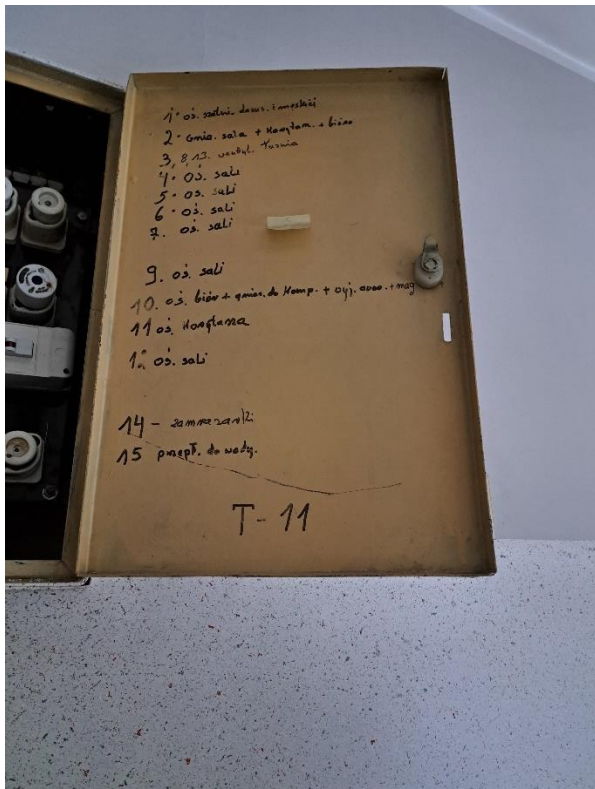 1. oś. szatni. dams. i męskiej
2. Gnia. sala + Konftam. + biuro
3, 8, 13. wentyl.
4. oś. sali
5. oś. sali
6. oś. sali
7. oś. sali
9. oś. sali
10. oś. biór + gniaz. do Komp. + + mag
11 oś.
oś. sali
14 - zamrazarki
15 przepł. do wody.
T-11